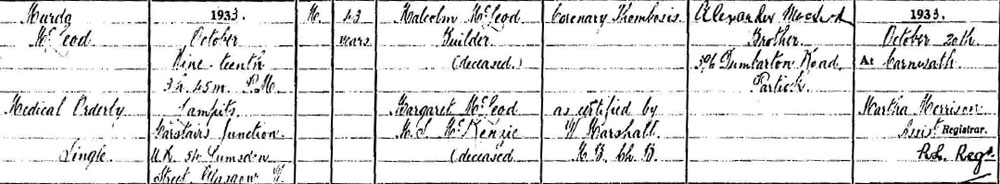 Murdo
McLeod
Medical Orderly
Single.
1933.
October
Nineteenth
3h. 45m. P.M.
Lampits
Carstairs Junction
U.R. 54 Lumsden
Street, Glasgow W.
M.
43
years
Malcolm McLeod
Builder
(deceased)
Margaret McLeod
M.S. McKenzie
(deceased
Coronary Thrombosis
as certified by
W Marshall
M.B. Ch.B
Alexander MacLeod
Brother
Dumbarton Road,
Partick
1933.
October 20th
At Carnwath
Martha Morrison
Assist Registrar.